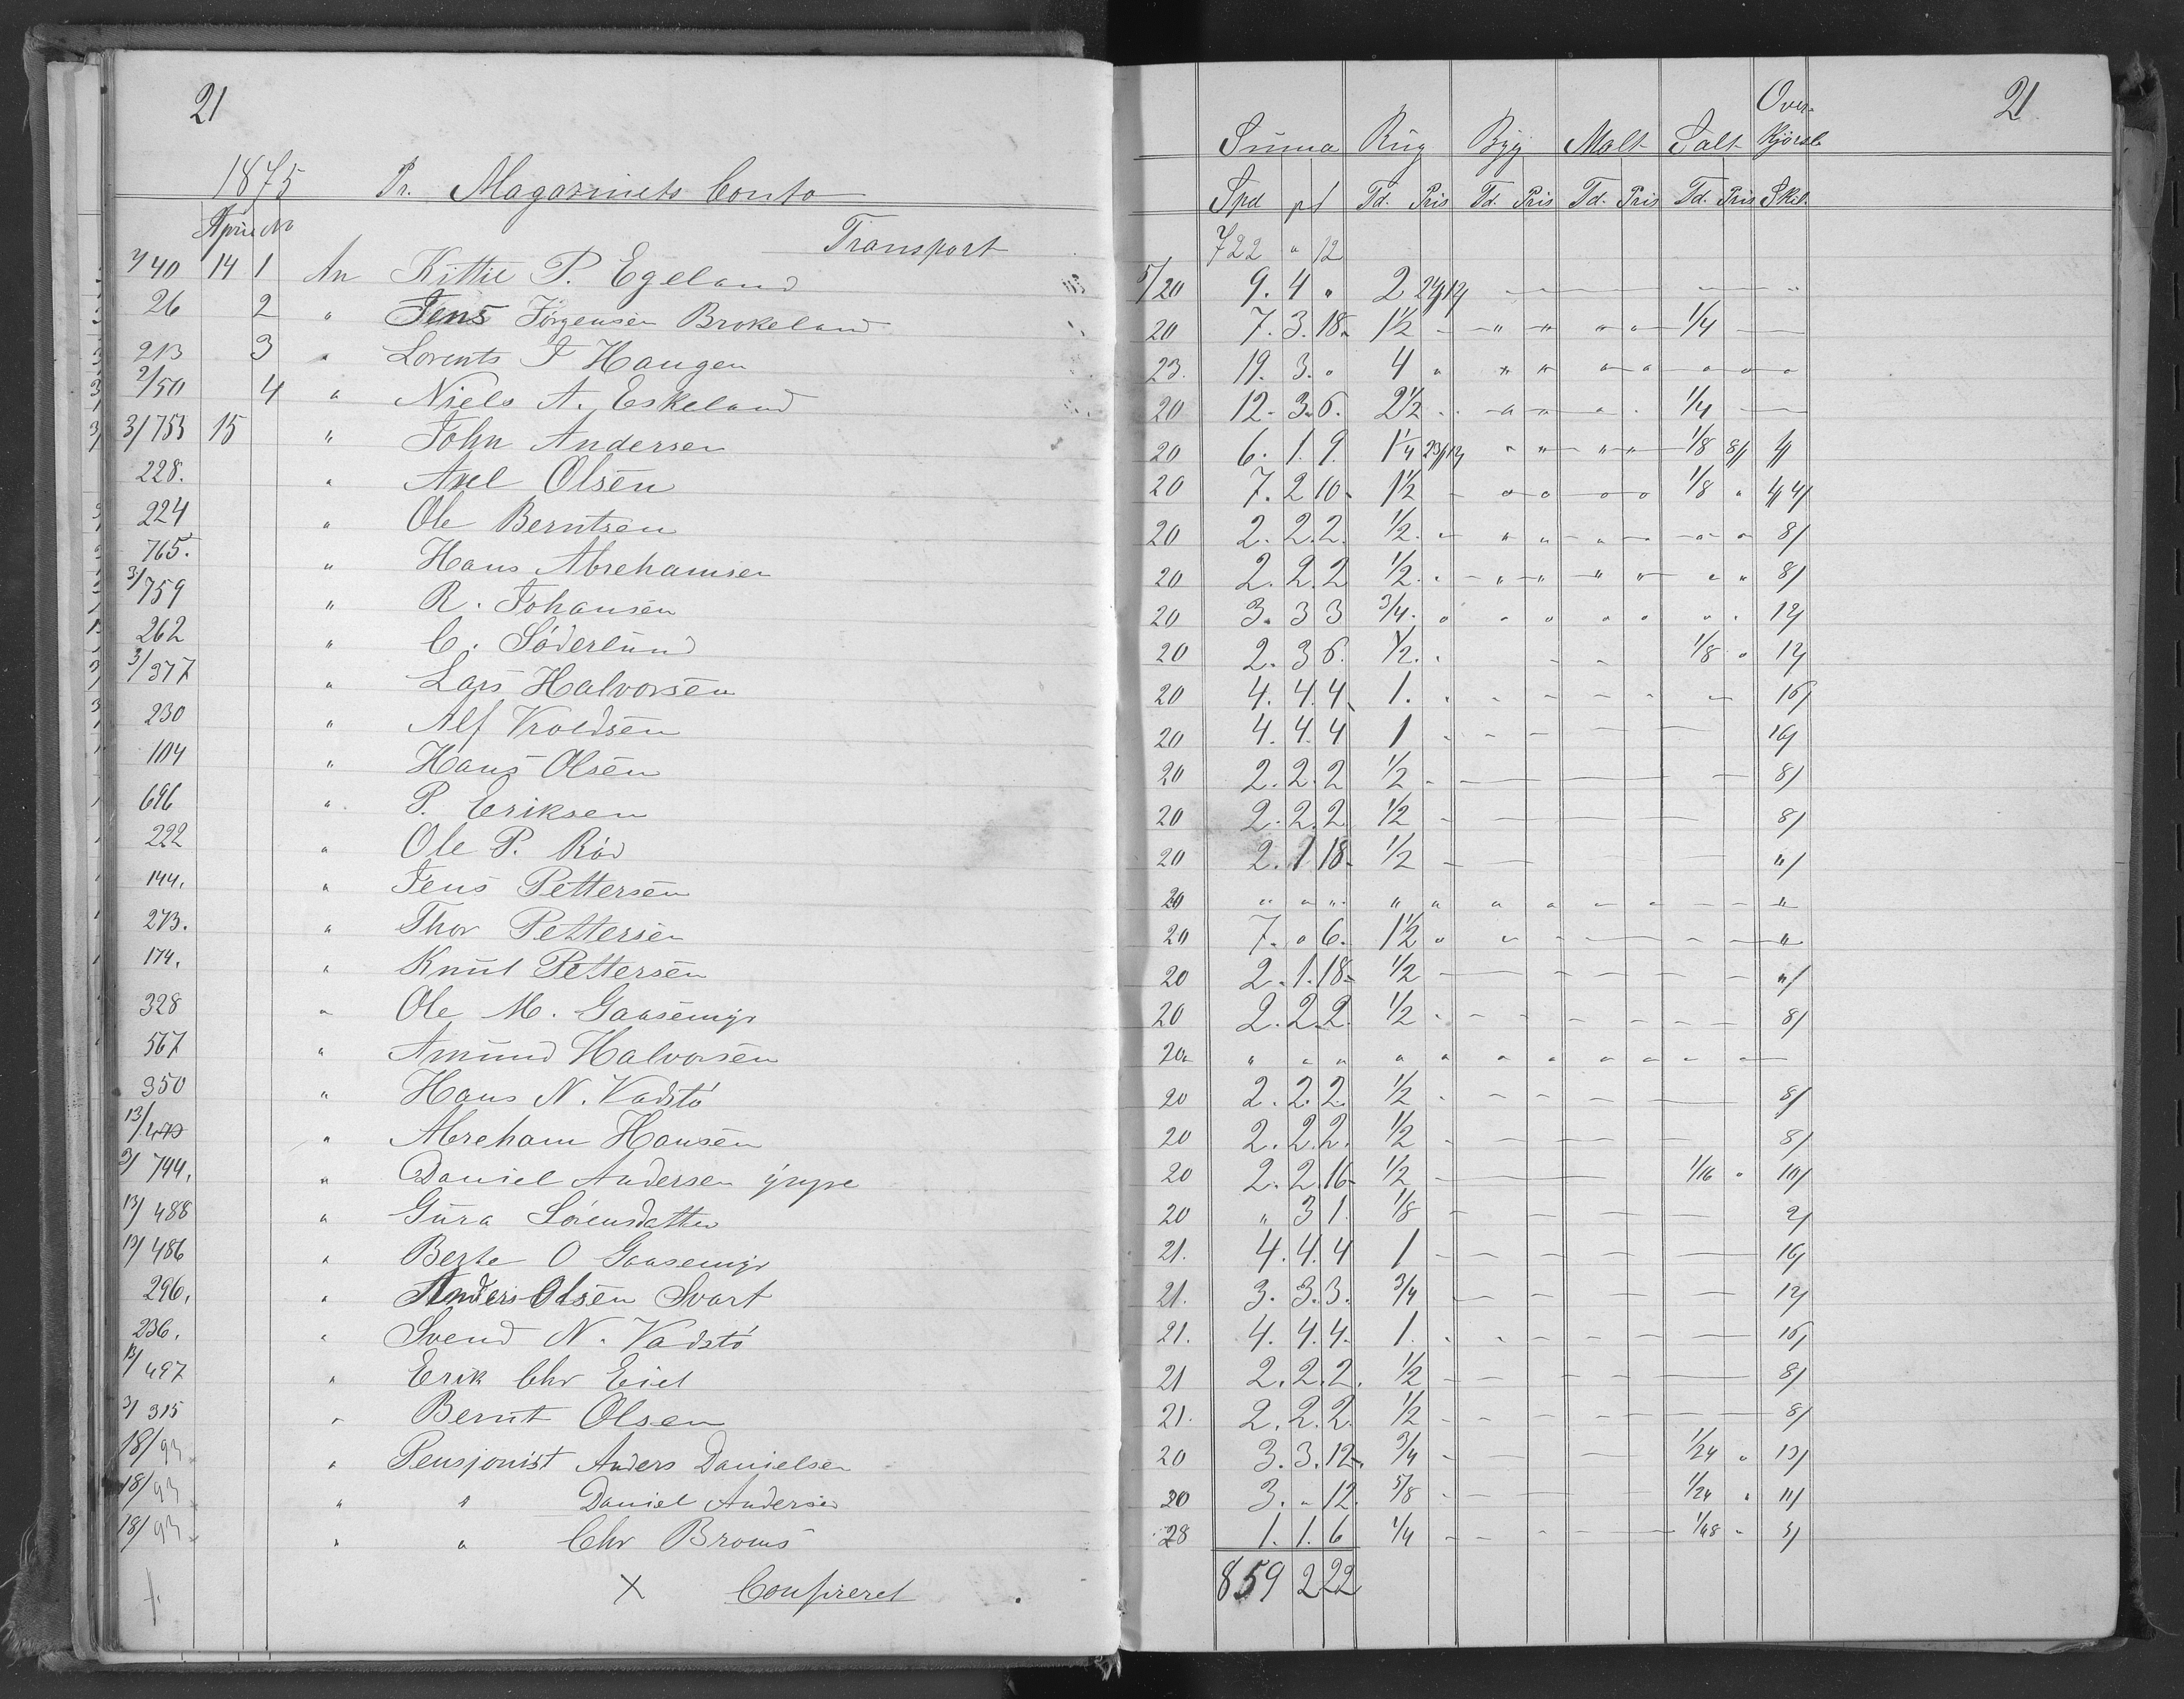 21
1875 Pr. Magazinets Conto
April No
Transport
1/40 14 1 An Kittil P. Egeland
26 2 " Jens Jørgensen Brokeland
213 3 " Lorents J Haugen
2/50 4 " Niels A. Eskeland
3/753 15 " John Andersen
228. " Axel Olsen
224 " Ole Berntsen
765. " Hans Abrehamsen
3/759 " R. Johansen
262 " C. Söderlund
3/377 " Lars Halvorsen
230 " Alf Kroldsen
104 " Hans Olsen
696 " P. Eriksen
222 " Ole P. Röd
144. " Jens Pettersen
273. " Thor Pettersen
174. " Knut Pettersen
328 " Ole M. Gaasemyr
567 " Amund Halvorsen
350 " Hans N. Vadstö
13/479 " Abreham Hansen
3/744. " Daniel Andersen
13/488 " Gura Sörensdatter
13/486 " Berte O Gaasemyr
296. " Anders Olsen Svart
236. " Svend N. Vadstö
13/497 " Erik Chr Eiel
3/315 " Bernt Olsen
18/93 " Pensjonist Anders Danielsen
18/93 " " Daniel Andersen
18/93 " " Chr Broms
X Confireret
21
Summa Rug Byg Malt Salt Over-
kjörsel
Spd Td. Pris Td. Pris Td. Pris Td. Pris Skil.
722 " 12
5/20 9. 4 " 2 24/12
20 7. 3. 18. 1½ 1/4
23. 19. 3. " 4 "
20 12. 3. 6. 2½ 1/4
20 6. 1. 9. 1¼ 23/12 1/8 8/ 4/
20 7. 2 10. 1½ 1/8 "
20 2. 2. 2. 1/2. 8/
20 2. 2. 2 1/2. 8/
20 3. 3 3 3/4. 12/
20 2. 3 6. 1/2. 1/8 " 12/
20 4. 4. 4 1. 16/
20 4. 4. 4 1 16/
20 2. 2. 2 1/2 8/
20 2. 2. 2 1/2 8/
20 2. 1 18. 1/2 "/
20 " " " " "
20 7. " 6. 1½ " "
20 2. 1. 18. 1/2 "/
20 2. 2. 2. 1/2 8/
20 " " " " "
20 2. 2. 2. 1/2 8/
20 2. 2. 2. 1/2 8/
20 2. 2. 16. 1/2 1/16 " 10/
20 " 3 1. 1/8 2/
21. 4. 4. 4 1 16/
21. 3. 3. 3. 3/4 12/
21. 4. 4. 4. 1. 16/
21 2. 2. 2. 1/2 8/
21. 2. 2. 2. 1/2 8/
20 3. 3. 12. 3/4 1/24 " 13/
20 3. " 12. 5/8 1/24 " 11/
28 1. 1. 6 1/4 1/48 " 5/
859 2 22